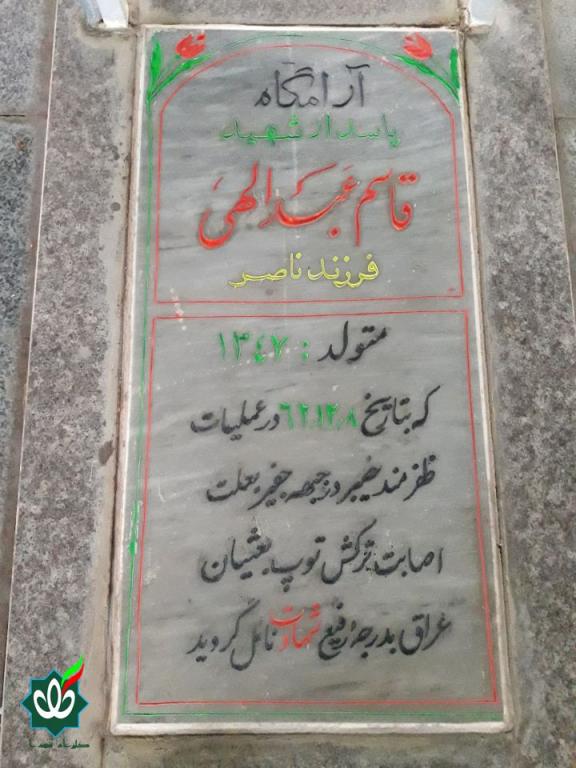 آرامگاه
پاسدار شهید
قاسم عبدالهی
فرزند ناصر
متولد : ۱۳۴۷
که بتاریخ ۶۲،۱۲،۸ در عملیات
ظفرمند خیبر در جبهه جفیر بعلت
اصابت ترکش توپ بعثیان
عراق بدرجهٔ رفیع شهادت نائل گردید